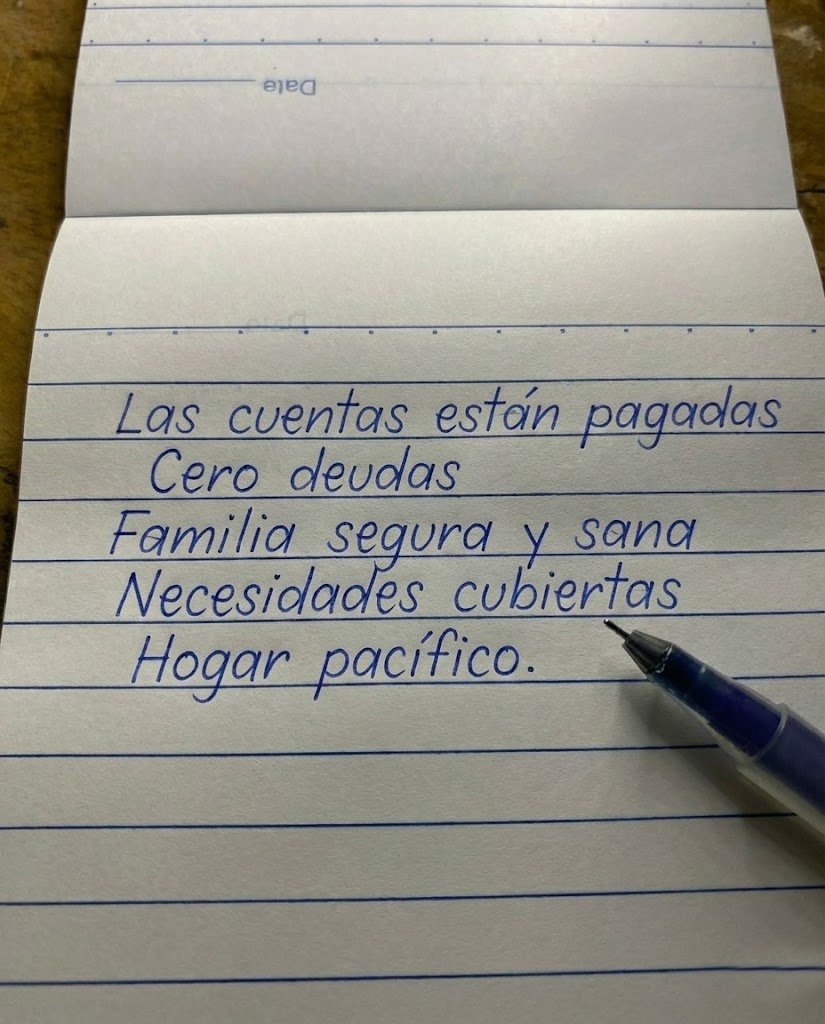 Date
Las cuentas están pagadas
Cero deudas
Familia segura y sana
Necesidades cubiertas
Hogar pacífico.